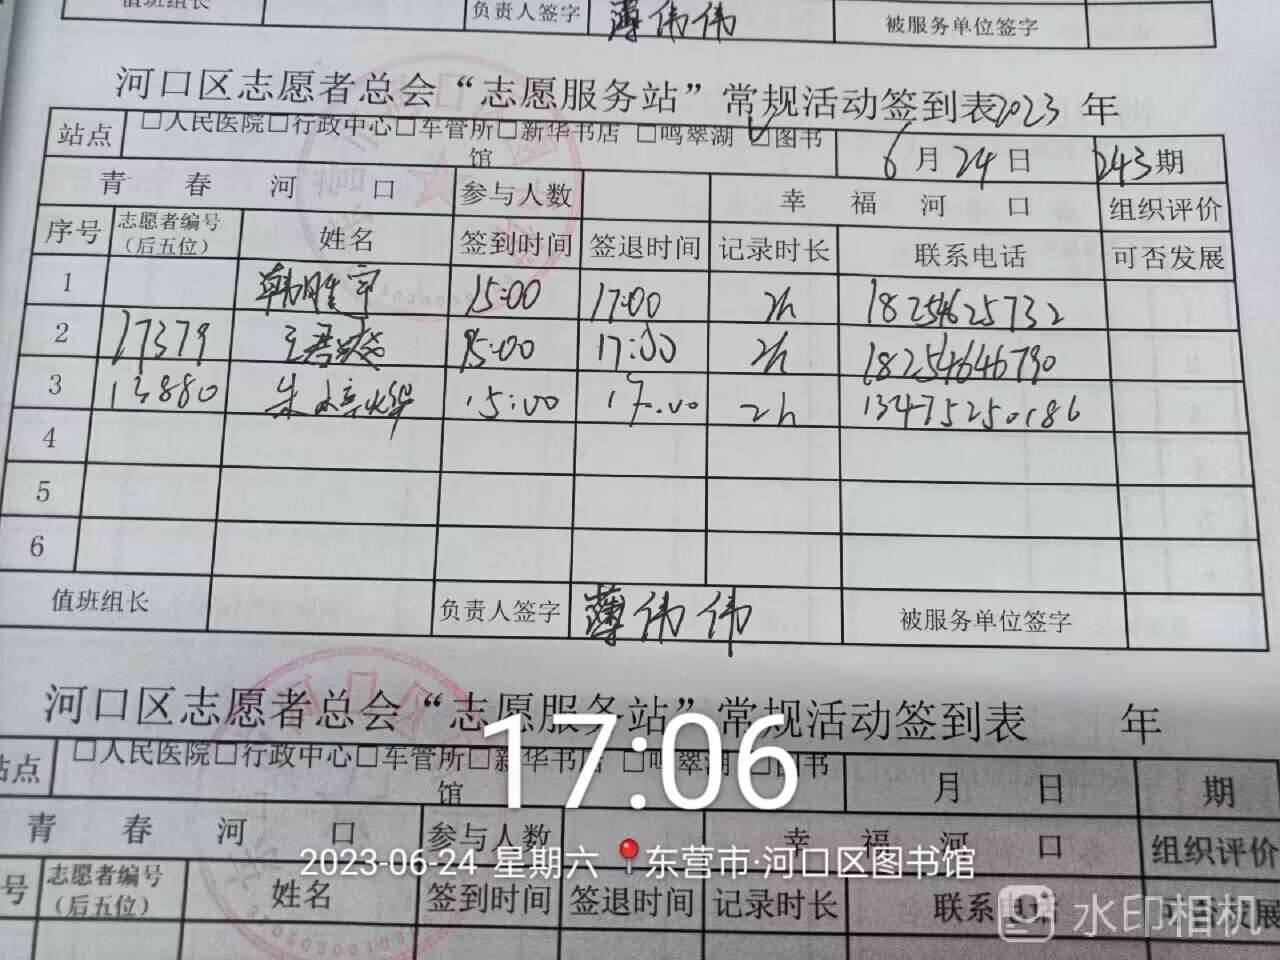 值班组长 负责人签字 薄伟伟 被服务单位签字
河口区志愿者总会“志愿服务站”常规活动签到表2023 年
站点 □人民医院□行政中心□车管所□新华书店 □鸣翠湖 ☑图书馆 6月24日 243期
青 春 河 口 参与人数 幸 福 河 口 组织评价
序号 志愿者编号（后五位） 姓名 签到时间 签退时间 记录时长 联系电话 可否发展
1 韩胜宇 15:00 17:00 2h 18254625732
2 17379 15:00 17:00 2h 18254646790
3 13880 朱 15:00 17:00 2h 13475250186
4
5
6
值班组长 负责人签字 薄伟伟 被服务单位签字
河口区志愿者总会“志愿服务站”常规活动签到表 年
站点 □人民医院□行政中心□车管所□新华书店 □鸣翠湖 □图书馆 月 日 期
17:06
青 春 河 口 参与人数 幸 福 河 口 组织评价
2023-06-24 星期六 东营市·河口区图书馆
号 志愿者编号（后五位） 姓名 签到时间 签退时间 记录时长 联系电话 可否发展
水印相机